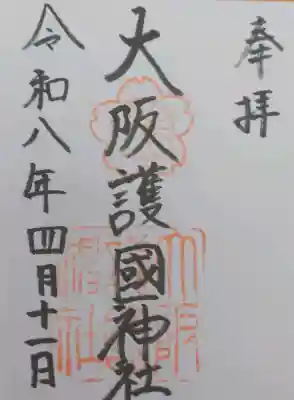 奉拝
大阪護國神社
令和八年四月十一日